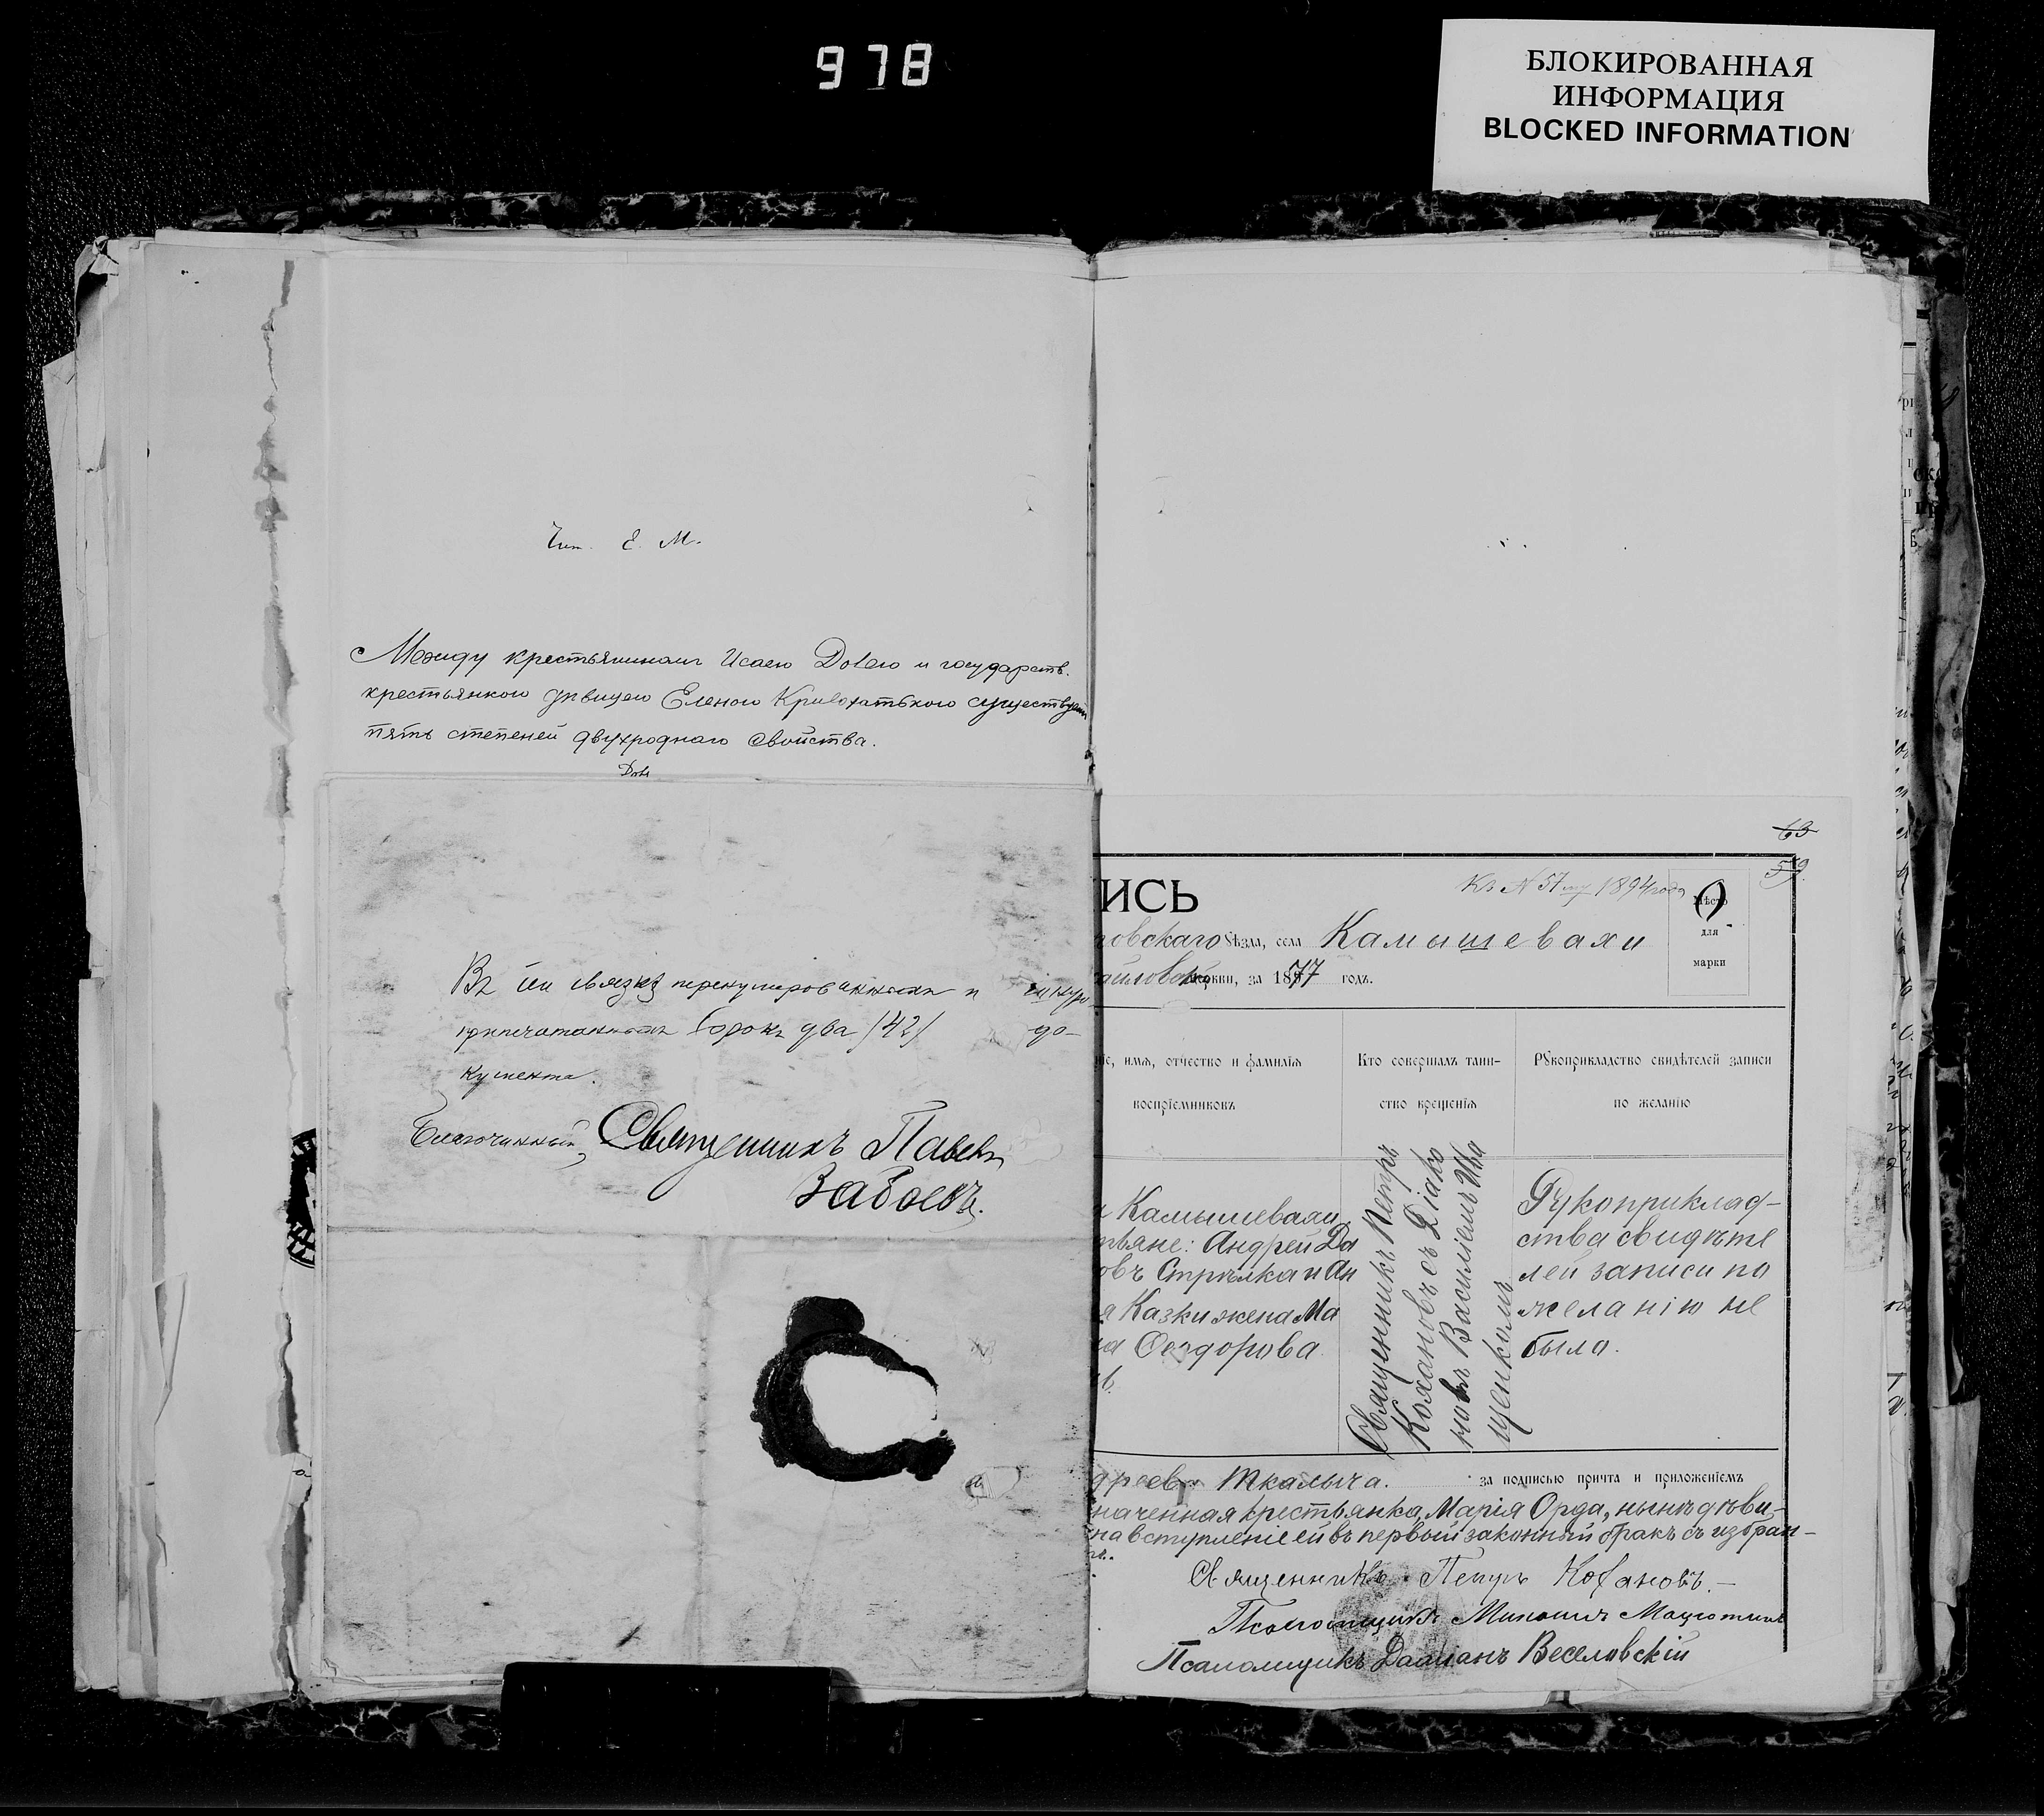 978
БЛОКИРОВАННАЯ
ИНФОРМАЦИЯ
BLOCKED INFORMATION
Е. М.
Между крестьяниномъ Исаею и государств.
крестьянкою дѣвицею Еленою существуетъ
пять степеней двухроднаго свойства.
Въ сей связкѣ пренумерованныхъ и шнуро-
припечатанныхъ сорокъ два /42/ до-
кумента.
Благочинный, Священникъ Павелъ
Забоевъ.
63
59.
ИСЬ
Къ № 57му 1894 года
Мѣсто
для
марки
овскаго Уѣзда, села Камышевахи
айловской церкви, за 1877 годъ.
іе, имя, отчество и фамилія
воспріемниковъ
Кто совершалъ таин-
ство крещенія
Рукоприкладство свидѣтелей записи
по желанію
Камышевахи
Андрей Да
овъ Стрѣлка и Ан
Казки жена Ма
Ѳеодорова
Священникъ Петръ
Кохановъ съ Діако
номъ Василіемъ Ива
щенкомъ
Рукоприклад-
ства свидѣте
лей записи по
желанію не
было.
дреевъ Ткалыча. за подписью причта и приложеніемъ
наченная крестьянка, Марія Орда, нынѣ дѣви-
на вступленіе ей въ первый законный бракъ съ избран-
Священникъ Петръ Кохановъ.—
Псаломщикъ
Псаломщикъ Даміанъ Веселовскій